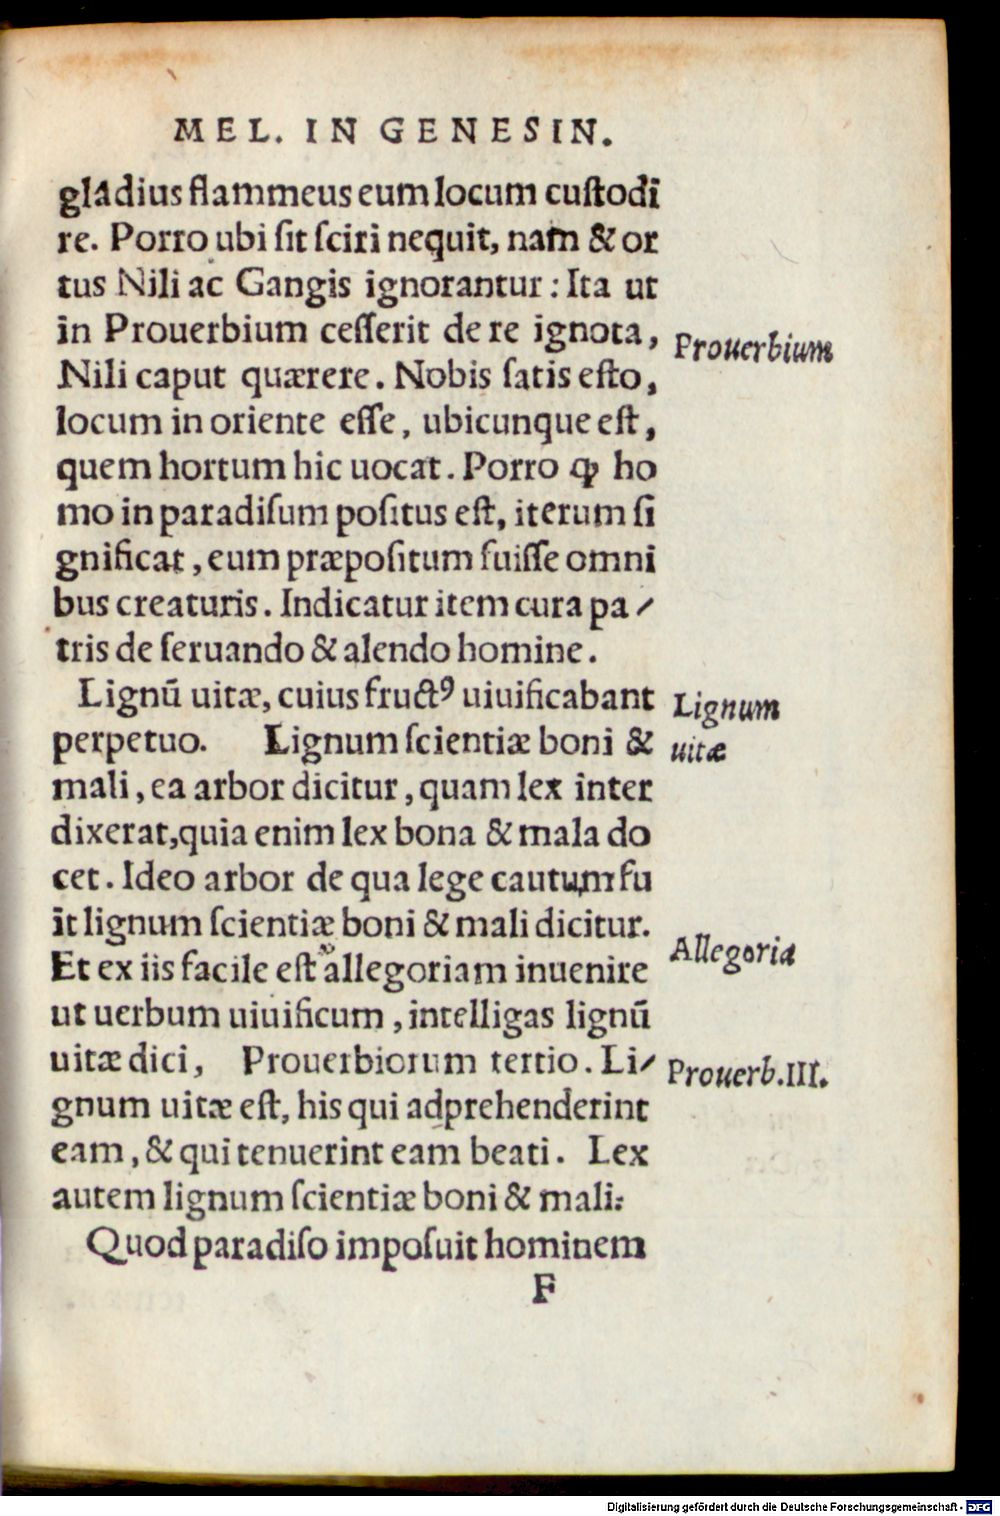 MEL. IN GENESIN.
gladius flammeus eum locum custodī
re. Porro ubi sit sciri nequit, nam & or
tus Nili ac Gangis ignorantur : Ita ut
in Prouerbium cesserit de re ignota,
Prouerbium
Nili caput quærere. Nobis satis esto,
locum in oriente esse, ubicunque est,
quem hortum hic uocat. Porro ꝙ ho
mo in paradisum positus est, iterum si
gnificat, eum præpositum fuisse omni
bus creaturis. Indicatur item cura pa⸗
tris de seruando & alendo homine.
Lignū uitæ, cuius fructꝰ uiuificabant
Lignum
perpetuo. Lignum scientiæ boni &
uitæ
mali, ea arbor dicitur, quam lex inter
dixerat, quia enim lex bona & mala do
cet. Ideo arbor de qua lege cautum fu
it lignum scientiæ boni & mali dicitur.
Et ex iis facile est allegoriam inuenire
Allegoria
ut uerbum uiuificum, intelligas lignū
uitæ dici, Prouerbiorum tertio. Li⸗
Prouerb. III.
gnum uitæ est, his qui adprehenderint
eam, & qui tenuerint eam beati. Lex
autem lignum scientiæ boni & mali:
Quod paradiso imposuit hominem
F
Digitalisierung gefördert durch die Deutsche Forschungsgemeinschaft - DFG